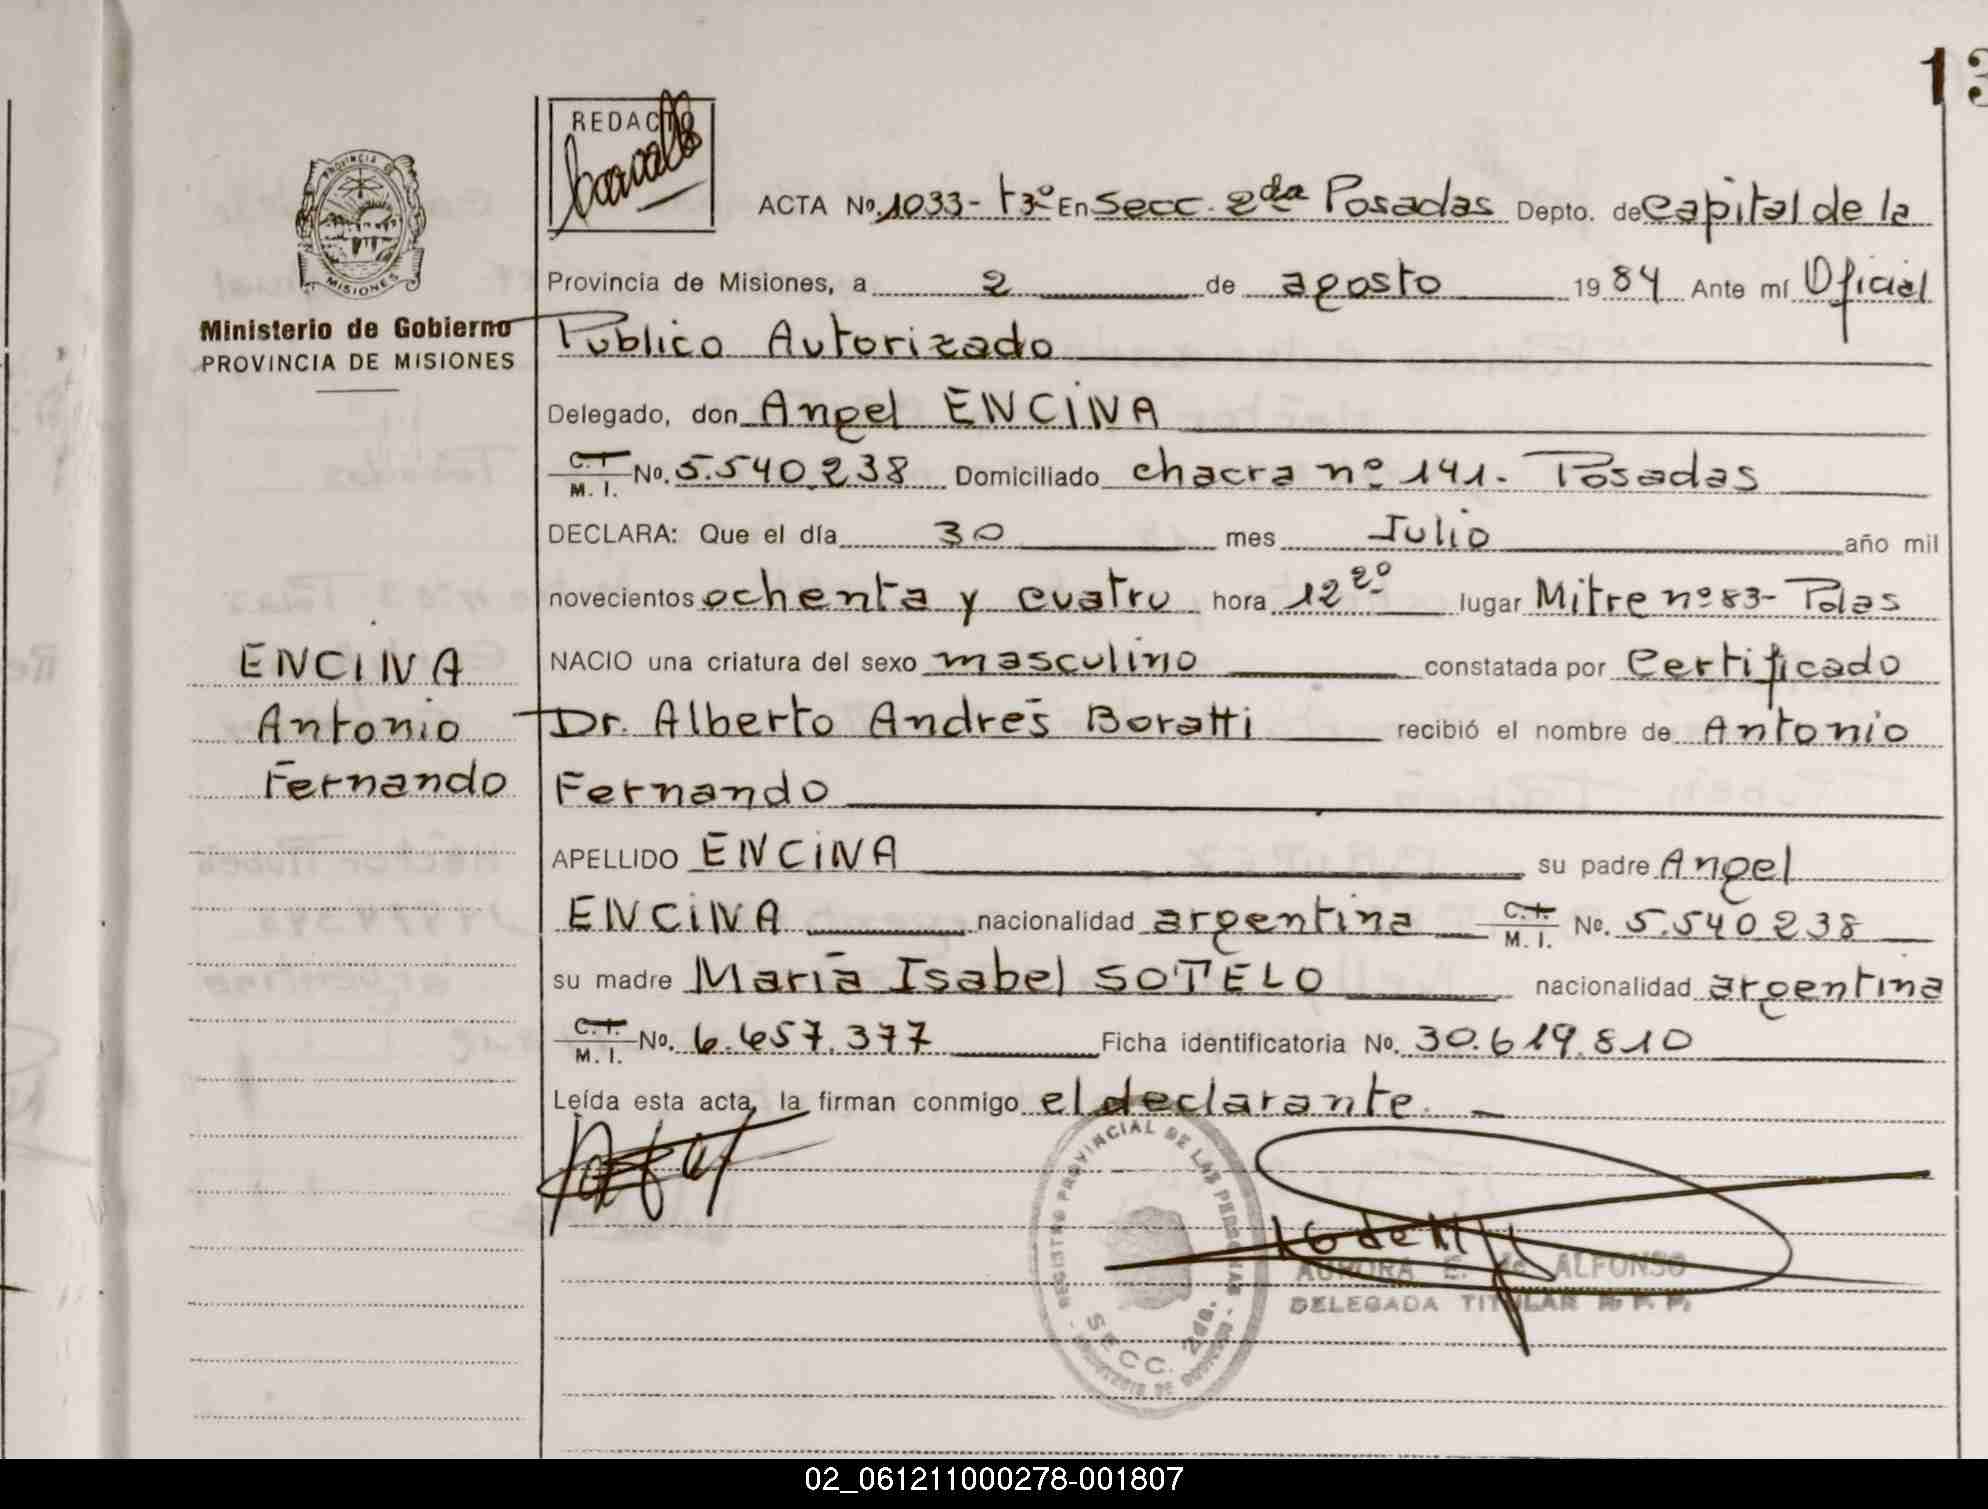 13
REDACTO
PROVINCIA DE
MISIONES
Ministerio de Gobierno
PROVINCIA DE MISIONES
ACTA Nº. 1033- t3º En Secc. 2da Posadas Depto. de Capital de la
Provincia de Misiones, a 2 de agosto 1984 Ante mí Oficial
Público Autorizado
Delegado, don Angel ENCINA
C.I. M. I. No. 5.540.238 Domiciliado chacra nº 141. Posadas
DECLARA: Que el día 30 mes Julio año mil
novecientos ochenta y cuatro hora 12 20 lugar Mitre nº 83- Pdas
NACIO una criatura del sexo masculino constatada por Certificado
Dr. Alberto Andrés Boratti recibió el nombre de Antonio
Fernando
APELLIDO ENCINA su padre Angel
ENCINA nacionalidad argentina C.I. M. I. No. 5.540.238
su madre María Isabel SOTELO nacionalidad argentina
C.I. M. I. No. 6.657.377 Ficha identificatoria No. 30.619.810
Leída esta acta, la firman conmigo el declarante.
ENCINA
Antonio
Fernando
REGISTRO PROVINCIAL DE LAS PERSONAS
SECC. 2da.
AURORA E. de ALFONSO
DELEGADA TITULAR R. P. P.
02_061211000278-001807